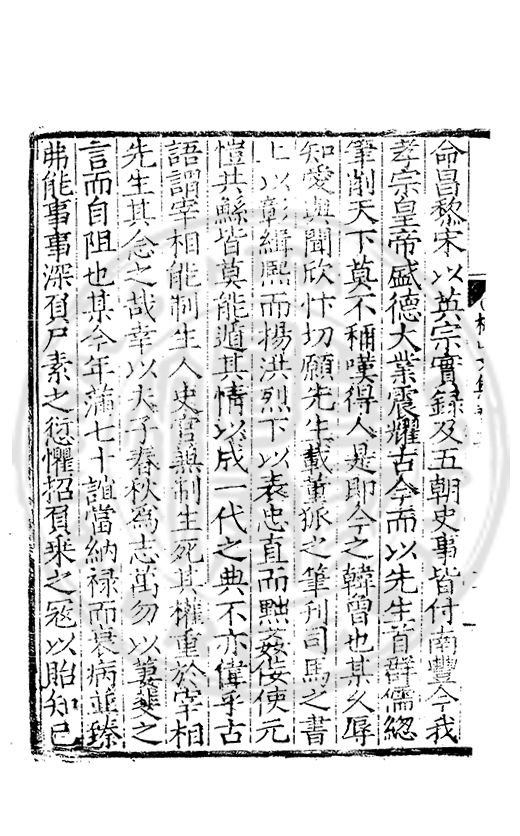 命昌黎宋以英宗實録及五朝史事皆付南豐今我
孝宗皇帝盛德大業震耀古今而以先生首群儒緫
筆削天下莫不稱嘆得人是即今之韓曾也某久辱
知愛與聞欣忭切願先生載董狐之筆刊司馬之書
上以彰緝熙而揚洪烈下以表忠直而黜姦佞使元
愷共鯀皆莫能遁其情以成一代之典不亦偉乎古
語謂宰相能制生人史官兼制生死其權重於宰相
先生其念之哉幸以夫子春秋爲志萬勿以萋斐之
言而自阻也某今年滿七十誼當納禄而衰病並臻
弗能事事深負尸素之愆懼招負乗之冦以貽知已